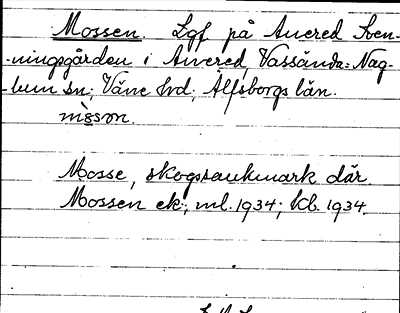 Mossen. Lgf på Anered Sven-
-ningsgården i Anered, Vassända-Nag-
-lum sn; Väne hd; Älfsborgs län.
mȯsən.
Mosse, skogsautmark där.
Mossen ek.; ml. 1934; kb. 1934.